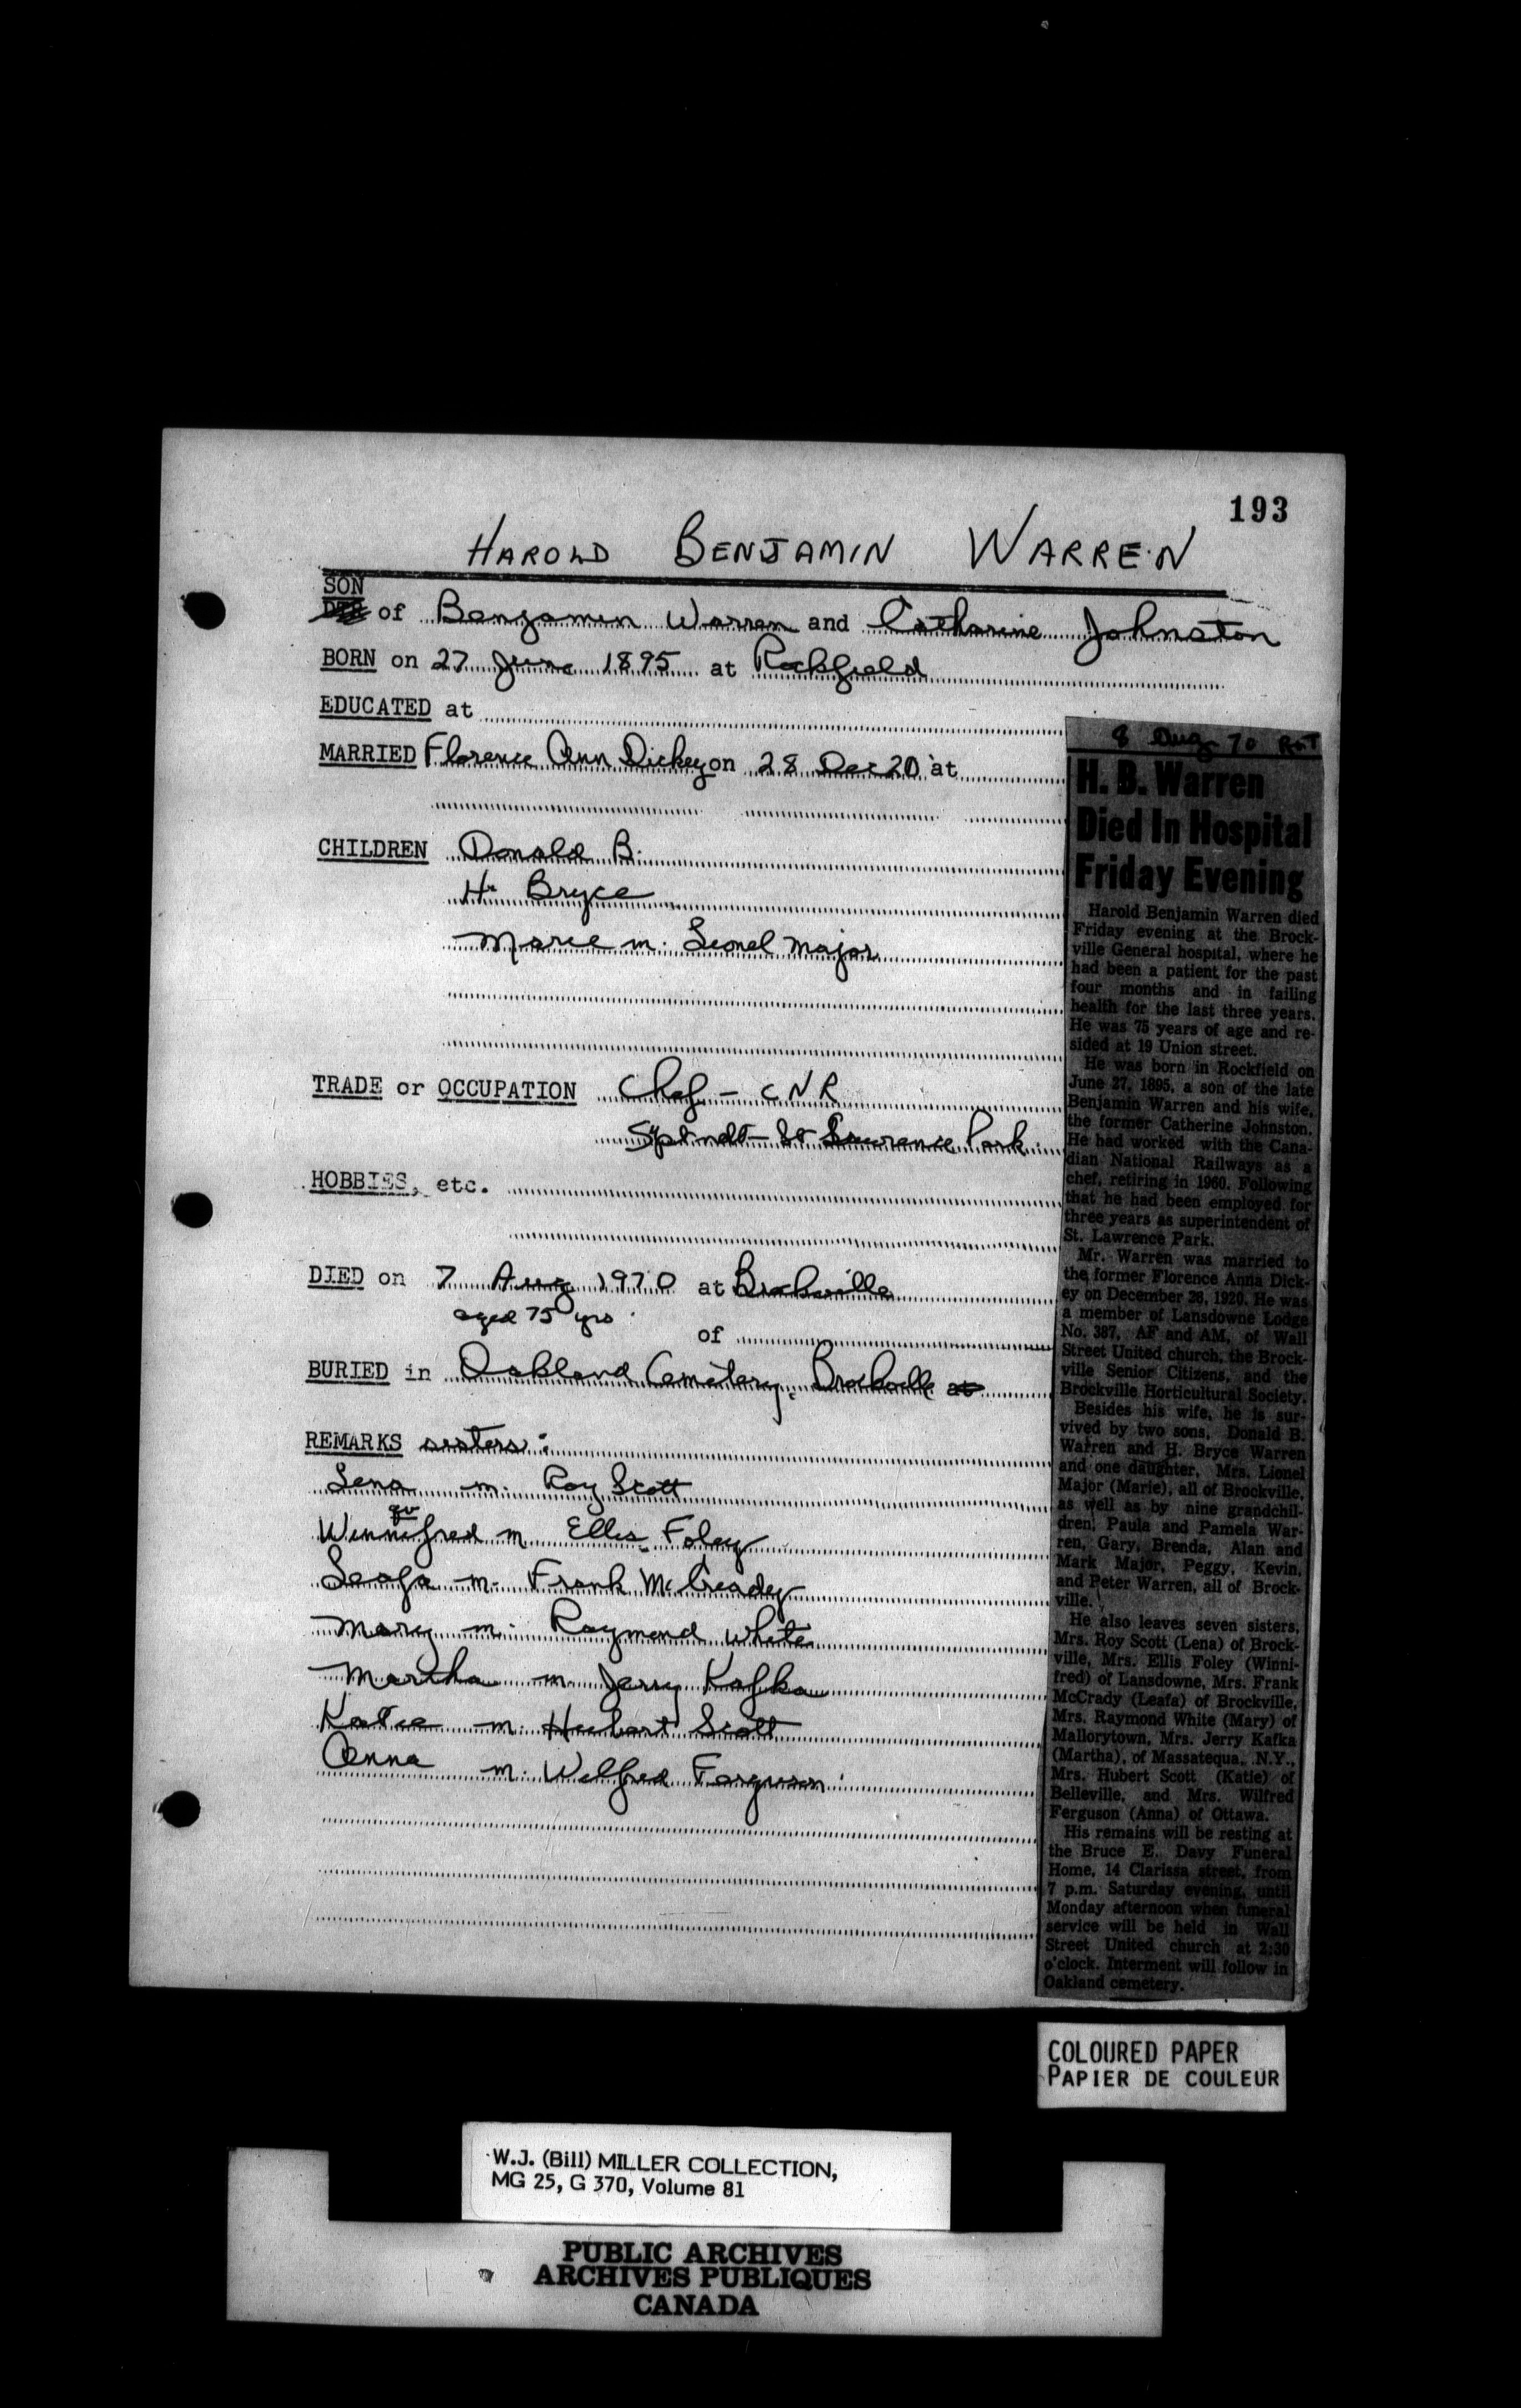 193
HAROLD BENJAMIN WARREN
SON
DTR of Benjamin Warren and Catharine Johnston
BORN on 27 June 1895 at Rockfield
EDUCATED at
MARRIED Florence Ann Dickey on 28 Dec 20 at
CHILDREN Donald B.
H. Bryce
Marie m. Lionel Major
TRADE or OCCUPATION Chef - CNR
Sptndt - St Lawrence Park.
HOBBIES, etc.
DIED on 7 Aug 1970 at Brockville
aged 75 yrs.
of
BURIED in Oakland Cemetery, Brockville at
REMARKS sisters:
Lena m. Roy Scott
qv
Winnifred m. Ellis Foley
Leafa m. Frank McCready
Mary m. Raymond White
Martha m. Jerry Kafka
Katie m. Hubert Scott
Anna m. Wilfred Ferguson
8 Aug 70 R&T
H. B. Warren
Died In Hospital
Friday Evening
Harold Benjamin Warren died
Friday evening at the Brock-
ville General hospital, where he
had been a patient for the past
four months and in failing
health for the last three years.
He was 75 years of age and re-
sided at 19 Union street.
He was born in Rockfield on
June 27, 1895, a son of the late
Benjamin Warren and his wife,
the former Catherine Johnston.
He had worked with the Cana-
dian National Railways as a
chef, retiring in 1960. Following
that he had been employed for
three years as superintendent of
St. Lawrence Park.
Mr. Warren was married to
the former Florence Anna Dick-
ey on December 28, 1920. He was
a member of Lansdowne Lodge
No. 387, AF and AM, of Wall
Street United church, the Brock-
ville Senior Citizens, and the
Brockville Horticultural Society.
Besides his wife, he is sur-
vived by two sons, Donald B.
Warren and H. Bryce Warren
and one daughter, Mrs. Lionel
Major (Marie), all of Brockville,
as well as by nine grandchil-
dren, Paula and Pamela War-
ren, Gary, Brenda, Alan and
Mark Major, Peggy, Kevin,
and Peter Warren, all of Brock-
ville.
He also leaves seven sisters,
Mrs. Roy Scott (Lena) of Brock-
ville, Mrs. Ellis Foley (Winni-
fred) of Lansdowne, Mrs. Frank
McCrady (Leafa) of Brockville,
Mrs. Raymond White (Mary) of
Mallorytown, Mrs. Jerry Kafka
(Martha), of Massatequa, N.Y.,
Mrs. Hubert Scott (Katie) of
Belleville, and Mrs. Wilfred
Ferguson (Anna) of Ottawa.
His remains will be resting at
the Bruce E. Davy Funeral
Home, 14 Clarissa street, from
7 p.m. Saturday evening, until
Monday afternoon when funeral
service will be held in Wall
Street United church at 2:30
o'clock. Interment will follow in
Oakland cemetery.
COLOURED PAPER
PAPIER DE COULEUR
W.J. (Bill) MILLER COLLECTION,
MG 25, G 370, Volume 81
PUBLIC ARCHIVES
ARCHIVES PUBLIQUES
CANADA